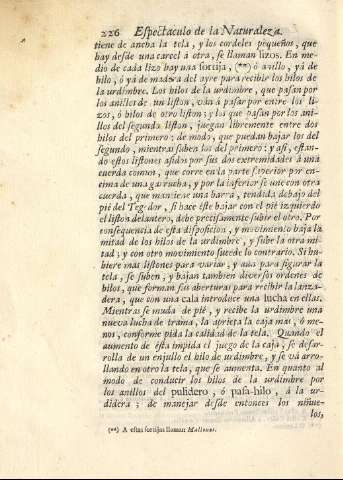 226 Espectaculo de la Naturaleza.
tiene de ancha la tela, y los cordeles pequeños, que
hay desde una carcel à otra, se llaman lizos. En me-
dio de cada lizo hay una sortija, (**) ò anillo, yá de
hilo, ò yá de madera del ayre para recibir los hilos de
la urdimbre. Los hilos de la urdimbre, que passan por
los anillos de un liston, ván à passar por entre los li-
zos, ò hilos de otro liston; y los que passan por los ani-
llos del segundo liston, juegan libremente entre dos
hilos del primero; de modo, que puedan bajar los del
segundo, mientras suben los del primero; y assi, estan-
do estos listones asidos por sus dos extremidades à una
cuerda comun, que corre en la parte superior por en-
cima de una garrucha, y por la inferior se une con otra
cuerda, que mantiene una barra, tendida debajo del
pie del Tegedor, si hace éste bajar con el pie izquierdo
el liston delantero, debe precisamente subir el otro. Por
consequencia de esta disposicion, y movimiento baja la
mitad de los hilos de la urdimbre, y sube la otra mi-
tad; y con otro movimiento sucede lo contrario. Si hu-
biere mas listones para variar, y aun para figurar la
tela, se suben, y bajan tambien diversos ordenes de
hilos, que forman sus aberturas para recibir la lanza-
dera, que con una cala introduce una lucha en ellas.
Mientras se muda de pie, y recibe la urdimbre una
nueva lucha de trama, la aprieta la caja mas, ò me-
nos, conforme pida la calidad de la tela. Quando el
aumento de ésta impida el juego de la caja, se desar-
rolla de un enjullo el hilo de urdimbre, y se vá arro-
llando en otro la tela, que se aumenta. En quanto al
modo de conducir los hilos de la urdimbre por
los anillos del pulidero, ò pasa-hilo, à la ur-
didera; de manejar desde entonces los
los,
(**) A estas sortijas llaman Mallones.